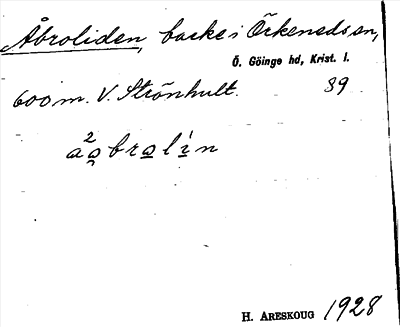 Åbroliden, backe i Örkeneds sn,
Ö. Göinge hd, Krist. l.
600 m. V. Strönhult. 39
H. ARESKOUG 1928